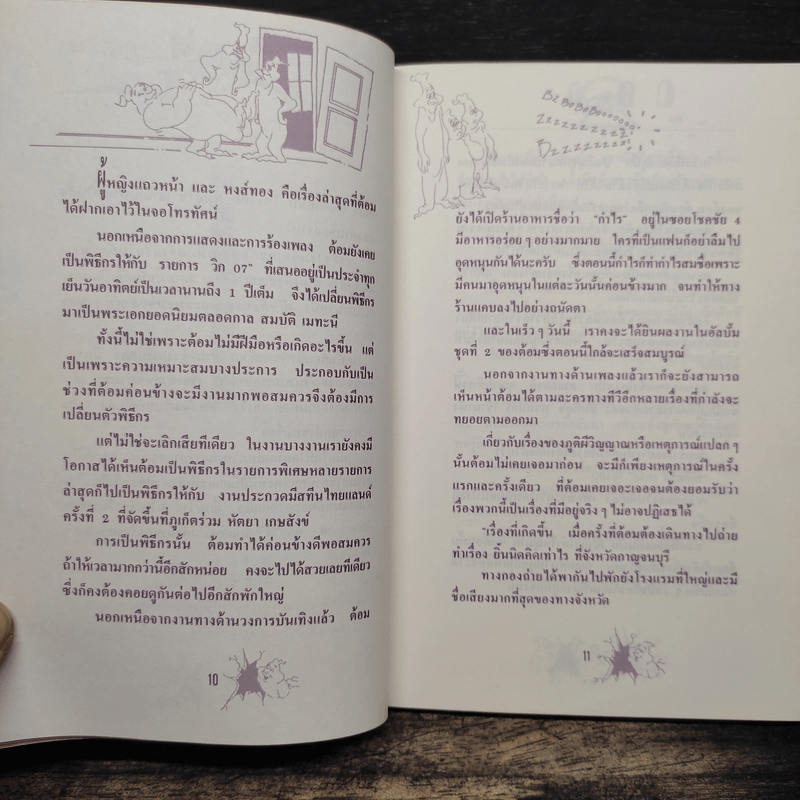 ผู้หญิงแถวหน้า และ หงส์ทอง คือเรื่องล่าสุดที่ต้อม
ได้ฝากเอาไว้ในจอโทรทัศน์
นอกเหนือจากการแสดงและการร้องเพลง ต้อมยังเคย
เป็นพิธีกรให้กับ รายการ วิก 07" ที่เสนออยู่เป็นประจำทุก
เย็นวันอาทิตย์เป็นเวลานานถึง 1 ปีเต็ม จึงได้เปลี่ยนพิธีกร
มาเป็นพระเอกยอดนิยมตลอดกาล สมบัติ เมทะนี
ทั้งนี้ไม่ใช่เพราะต้อมไม่มีฝีมือหรือเกิดอะไรขึ้น แต่
เป็นเพราะความเหมาะสมบางประการ ประกอบกับเป็น
ช่วงที่ต้อมค่อนข้างจะมีงานมากพอสมควรจึงต้องมีการ
เปลี่ยนตัวพิธีกร
แต่ไม่ใช่จะเลิกเสียทีเดียว ในงานบางงานเรายังคงมี
โอกาสได้เห็นต้อมเป็นพิธีกรในรายการพิเศษหลายรายการ
ล่าสุดก็ไปเป็นพิธีกรให้กับ งานประกวดมีสทีนไทยแลนด์
ครั้งที่ 2 ที่จัดขึ้นที่ภูเก็ตร่วม หัตยา เกษสังข์
การเป็นพิธีกรนั้น ต้อมทำได้ค่อนข้างดีพอสมควร
ถ้าให้เวลามากกว่านี้อีกสักหน่อย คงจะไปได้สวยเลยทีเดียว
ซึ่งก็คงต้องคอยดูกันต่อไปอีกสักพักใหญ่
นอกเหนือจากงานทางด้านวงการบันเทิงแล้ว ต้อม
10
BzBoBoBoooooooo!
Zzzzzzzzzzz!
Bzzzzzzzzz!
ยังได้เปิดร้านอาหารชื่อว่า "กำไร" อยู่ในซอยโชคชัย 4
มีอาหารอร่อย ๆ อย่างมากมาย ใครที่เป็นแฟนก็อย่าลืมไป
อุดหนุนกันได้นะครับ ซึ่งตอนนี้กำไรก็ทำกำไรสมชื่อเพราะ
มีคนมาอุดหนุนในแต่ละวันนั้นค่อนข้างมาก จนทำให้ทาง
ร้านแคบลงไปอย่างถนัดตา
และในเร็ว ๆ วันนี้ เราคงจะได้ยินผลงานในอัลบั้ม
ชุดที่ 2 ของต้อมซึ่งตอนนี้ใกล้จะเสร็จสมบูรณ์
นอกจากงานทางด้านเพลงแล้วเราก็จะยังสามารถ
เห็นหน้าต้อมได้ตามละครทางทีวีอีกหลายเรื่องที่กำลังจะ
ทยอยตามออกมา
เกี่ยวกับเรื่องของภูติผีวิญญาณหรือเหตุการณ์แปลก ๆ
นั้นต้อมไม่เคยเจอมาก่อน จะมีก็เพียงเหตุการณ์ในครั้ง
แรกและครั้งเดียว ที่ต้อมเคยเจอะเจอจนต้องยอมรับว่า
เรื่องพวกนี้เป็นเรื่องที่มีอยู่จริง ๆ ไม่อาจปฏิเสธได้
"เรื่องที่เกิดขึ้น เมื่อครั้งที่ต้อมต้องเดินทางไปถ่าย
ทำเรื่อง ยิ้มนิดคิดเท่าไร ที่จังหวัดกาญจนบุรี
ทางกองถ่ายได้พากันไปพักยังโรงแรมที่ใหญ่และมี
ชื่อเสียงมากที่สุดของทางจังหวัด
11